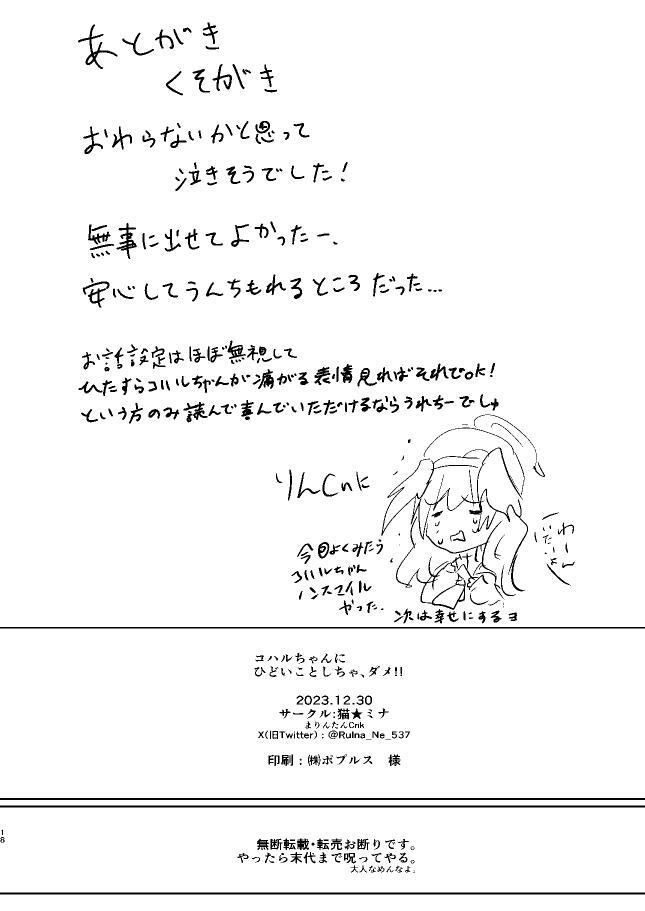 あとがき
くそがき
おわらないかと思って
泣きそうでした!
無事に出せてよかったー、
安心してうんちもれるところだった...
お話設定はほぼ無視して
ひたすらコハルちゃんが痛がる表情見ればそれでok!
という方のみ読んで喜んでいただけるならうれちーでしゅ
りんCnに
わーん
いたいよ
今回よくみたら
コハルちゃん
ノンスマイル
やった.
次は幸せにするヨ
コハルちゃんに
ひどいことしちゃ、ダメ!!
2023.12.30
サークル:猫★ミナ
まりんたんCnk
X(旧Twitter):@RuIna_Ne_537
印刷:㈱ポプルス 様
18
無断転載・転売お断りです。
やったら末代まで呪ってやる。
大人なめんなよ」